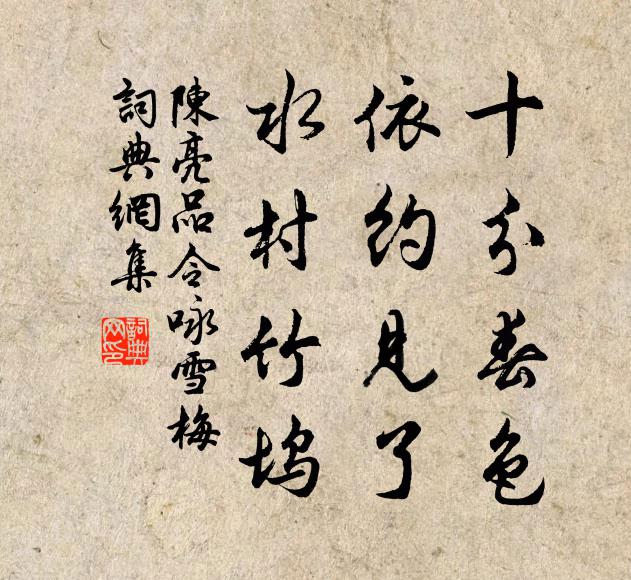 十分春色
依約見了
水村竹塢
陳亮品令咏雪梅
詞典網集
詞典网印